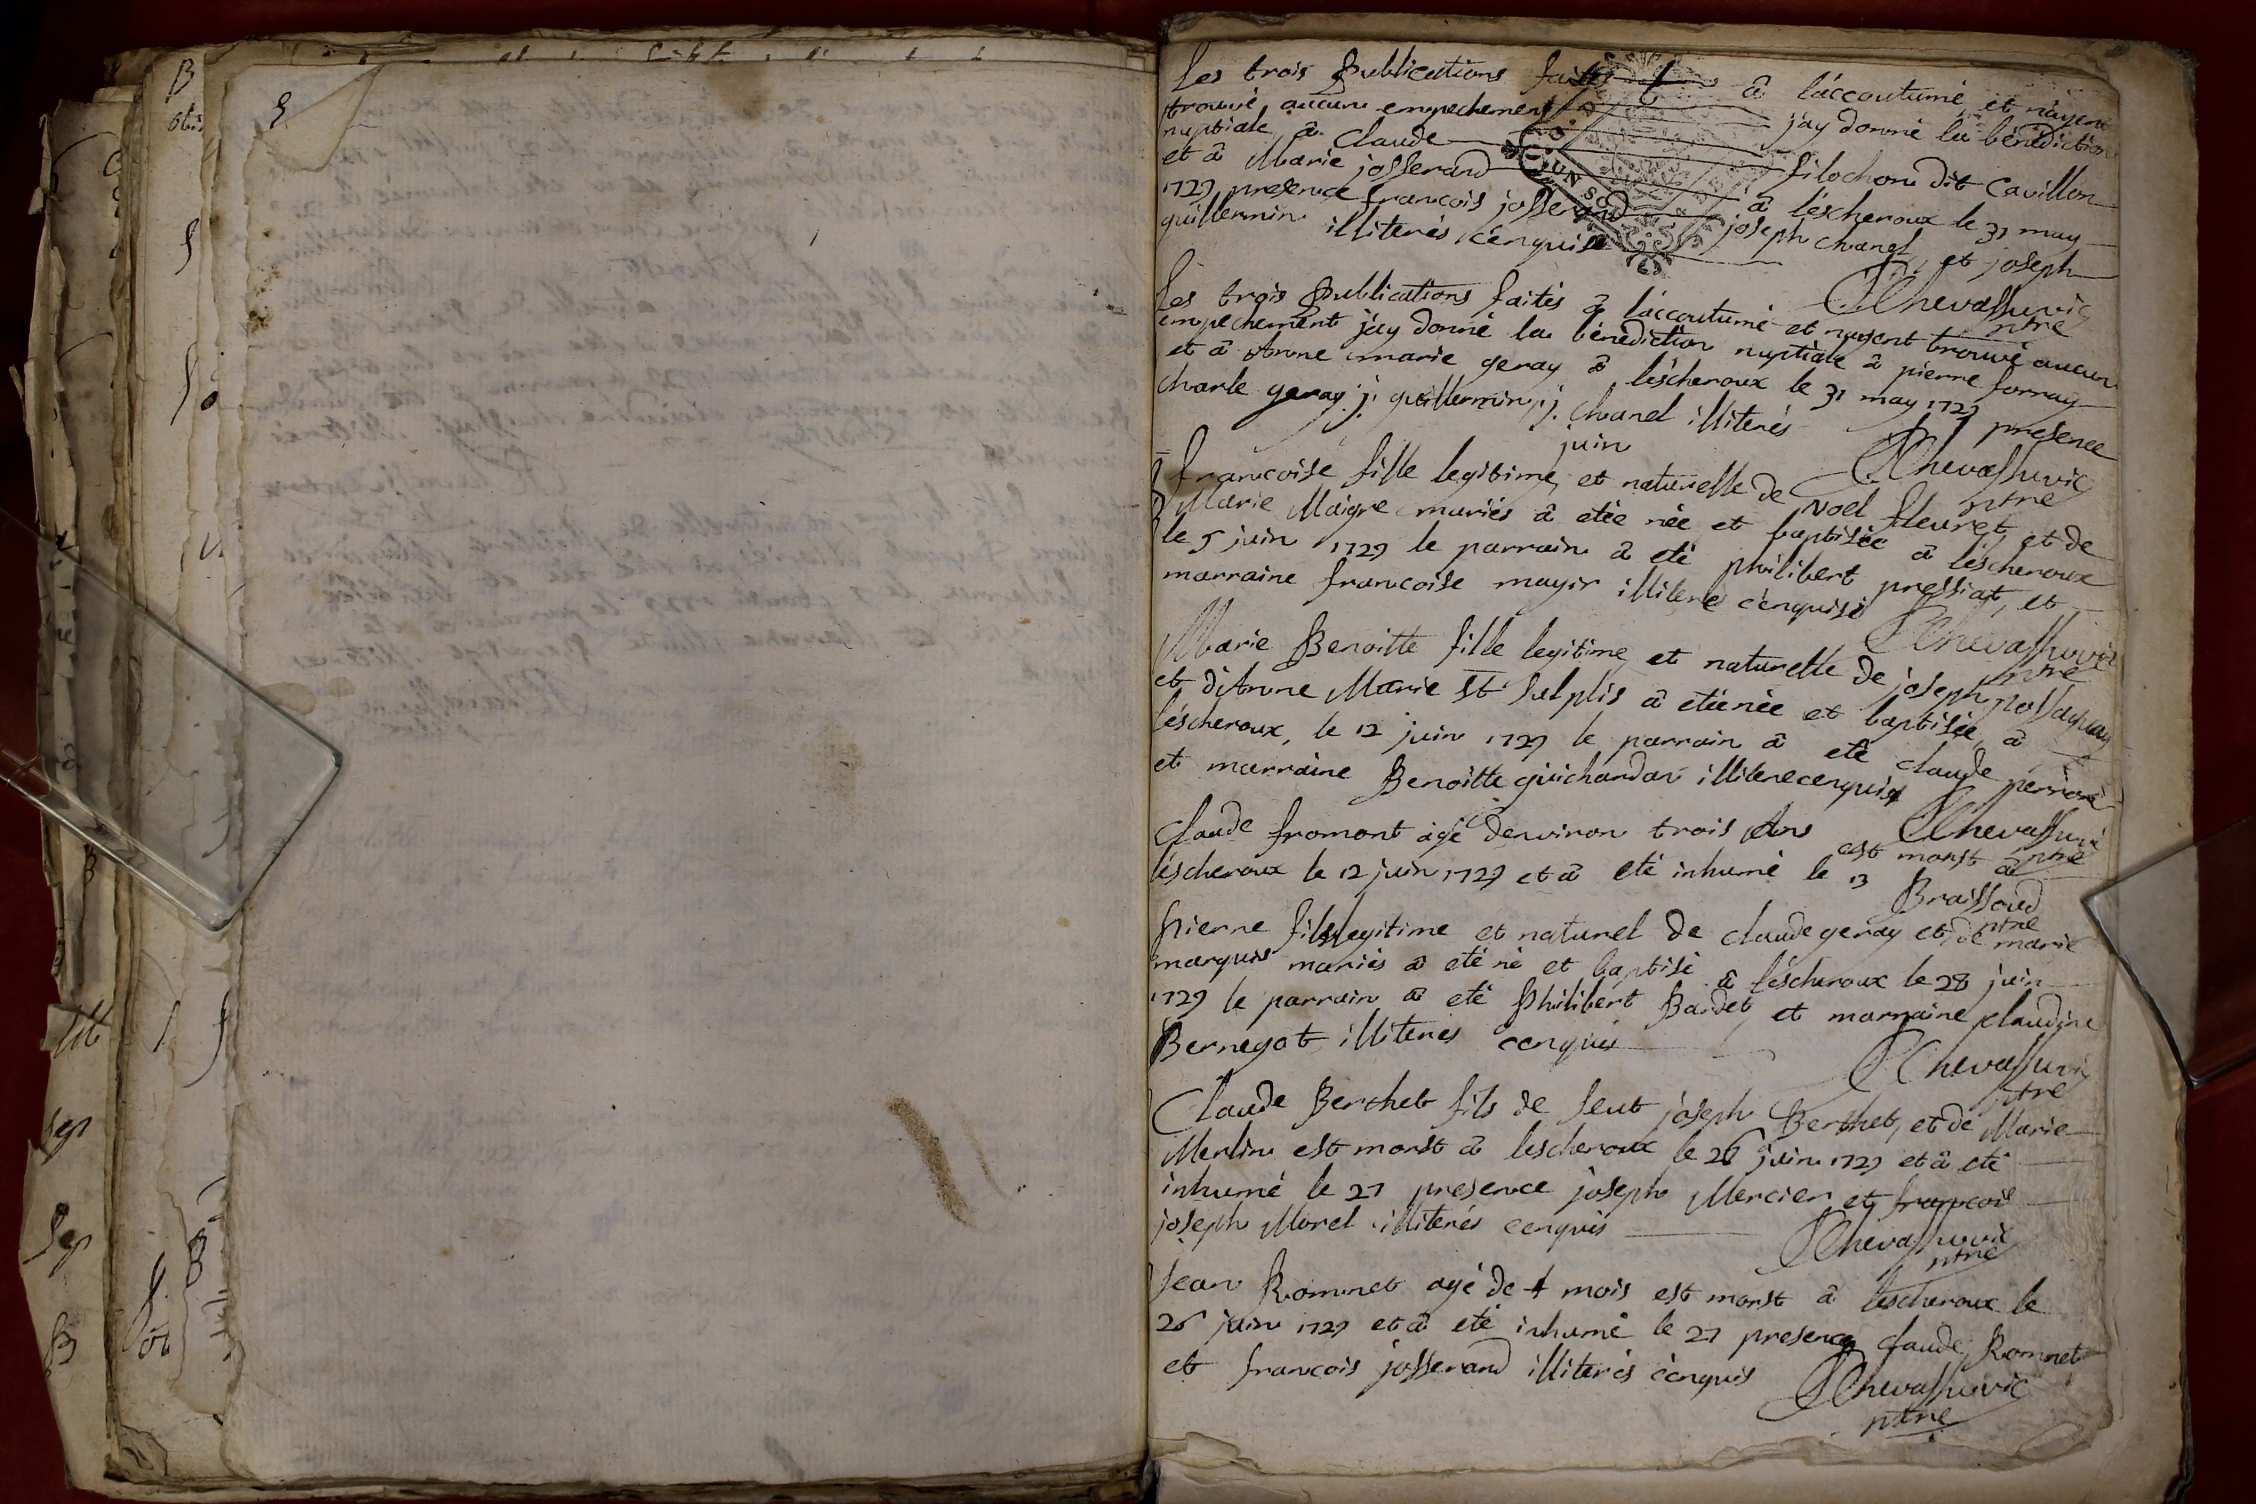 Les trois Publications faites à l'accoutumé et n'ayent
trouvé aucun empechement j'ay donné la bénédiction
nuptiale, à Claude filochon dit Cavillon
et à Marie josserand à léscheroux le 31 may
1729 presence francois josserand joseph chanel, et joseph
guillermin illiterés énquis
Chevassuvic
ptre
Les trois Publications faités à láccoutumé et nayent trouvé aucun
empechement j'ay donné la bénédiction nuptiale à pierre forray
et à Anne marie geray à léscheroux le 31 may 1729 presence
charle geray j. guillermin, j. chanel illiterés
Chevassuvic
ptre
juin
francoise fille legitime, et naturelle de Noel fleuret, et de
Marie Maigre mariés à etée née et baptisée à léscheroux
le 5 juin 1729 le parrain à eté philibert pressiat, et
marraine francoise mayir illiteré énquisé
Chevassuvic
ptre
Marie Benoitte fille legitime, et naturelle de joseph
et d'Anne Marie St Sulplis à etée née et baptisée à
léscheroux, le 12 juin 1729 le parrain à eté claude perrion
et marraine Benoitte guichardan illitere cenquis
Chevassuvic
ptre
Claude fromont agé denviron trois Ans est monst à
léscheroux le 12 juin 1729 et à eté inhumé le 13
Braissoud
ptre
Pierre fils legitime et naturel de claude geray et de marie
marquis mariés à eté né et baptisé à léscheroux le 28 juin
1729 le parrain à eté Philibert Bardet, et marraine claudine
Bernegat illiteres cenquis
Chevassuvic
ptre
Claude Berthet fils de feut joseph Berthet, et de Marie
Merlin est monst à lescheroux le 26 juin 1729 et à eté
inhumé le 27 presence joseph Mercier et francois
joseph Morel illiterés cenquis
Chevassuvic
ptre
Jean Rommet agé de 4 mois est monst à lescheroux le
26 juin 1729 et à eté inhumé le 27 presence claude Rommet
et francois josserand illiterés cénquis
Chevassuvic
ptre